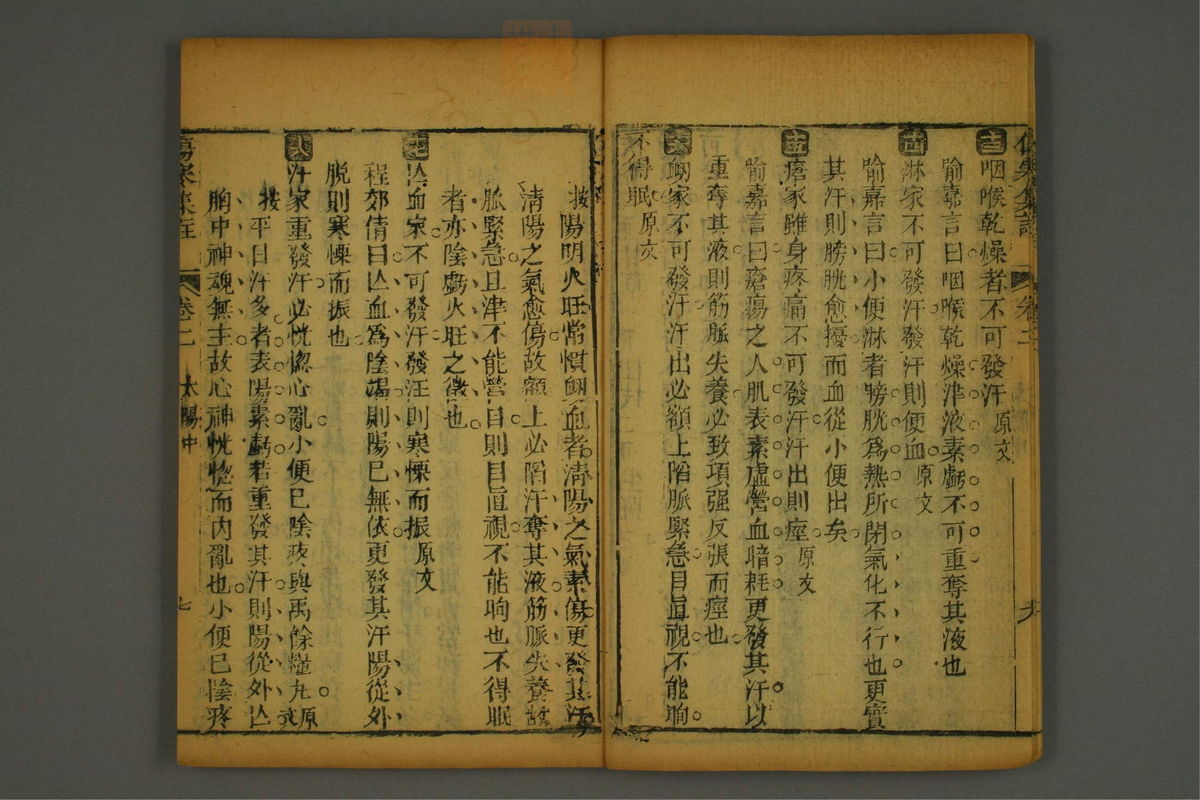 傷寒集註
卷二
六
咽喉乾燥者不可發汗原文
喻嘉言曰咽喉乾燥津液素虧不可重奪其液也
淋家不可發汗發汗則便血原文
喻嘉言曰小便淋者膀胱為熱所閉氣化不行也更實
其汗則膀胱愈擾而血從小便出矣
瘡家雖身疼痛不可發汗汗出則痙原文
喻嘉言曰瘡瘍之人肌表素虛營血暗耗更發其汗以
重奪其液則筋脈失養必致項强反張而痙也
衂家不可發汗汗出必額上陷脈緊急目直視不能眴
不得眠原文
按陽明火旺常慣衂血者淸陽之氣素傷更發其汗
淸陽之氣愈傷故額上必陷汗奪其液筋脈失養故
脈緊急且津不能營目則目直視不能眴也不得眠
者亦陰虧火旺之徵也
亾血家不可發汗發汪則寒慄而振原文
程郊倩曰亾血為陰竭則陽已無依更發其汗陽從外
脫則寒慄而振也
汗家重發汗必恍惚心亂小便已陰疼與禹餘糧丸原文
按平日汗多者表陽素虧若重發其汗則陽從外亾
胸中神魂無主故心神恍惚而內亂也小便已陰疼
傷寒集註
卷二
太陽中
七